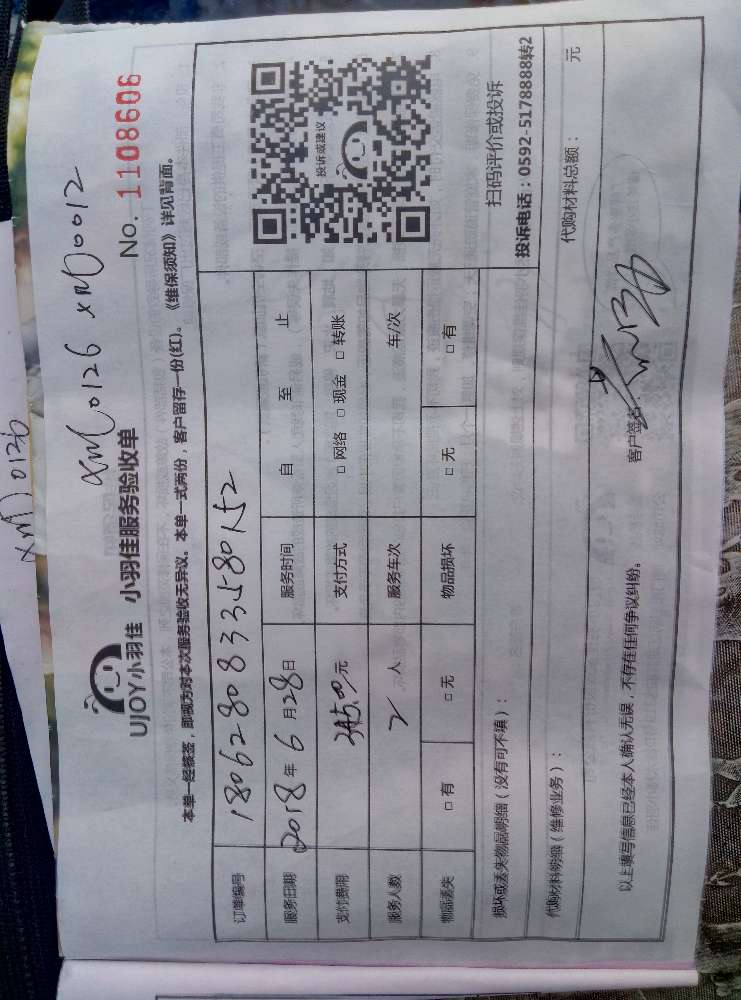 XMJ0126
XMJ0126 XMJ0012
UJOY小羽佳 小羽佳服务验收单
No. 1108606
本单一经核签，即视为对本次服务验收无异议。本单一式两份，客户留存一份(红)。《维保须知》详见背面。
订单编号 1806280833580152
服务日期 2018年6月28日 服务时间 自 至 止
支付费用 345.00元 支付方式 □网络 □现金 □转账
服务人数 2人 服务车次 车/次
物品丢失 □有 □无 物品损坏 □无 □有
投诉或建议
扫码评价或投诉
投诉电话：0592-5178888转2
损坏或丢失物品明细（没有可不填）：
代购材料明细（维修业务）： 代购材料总额： 元
以上填写信息已经本人确认无误，不存在任何争议纠纷。 客户签名